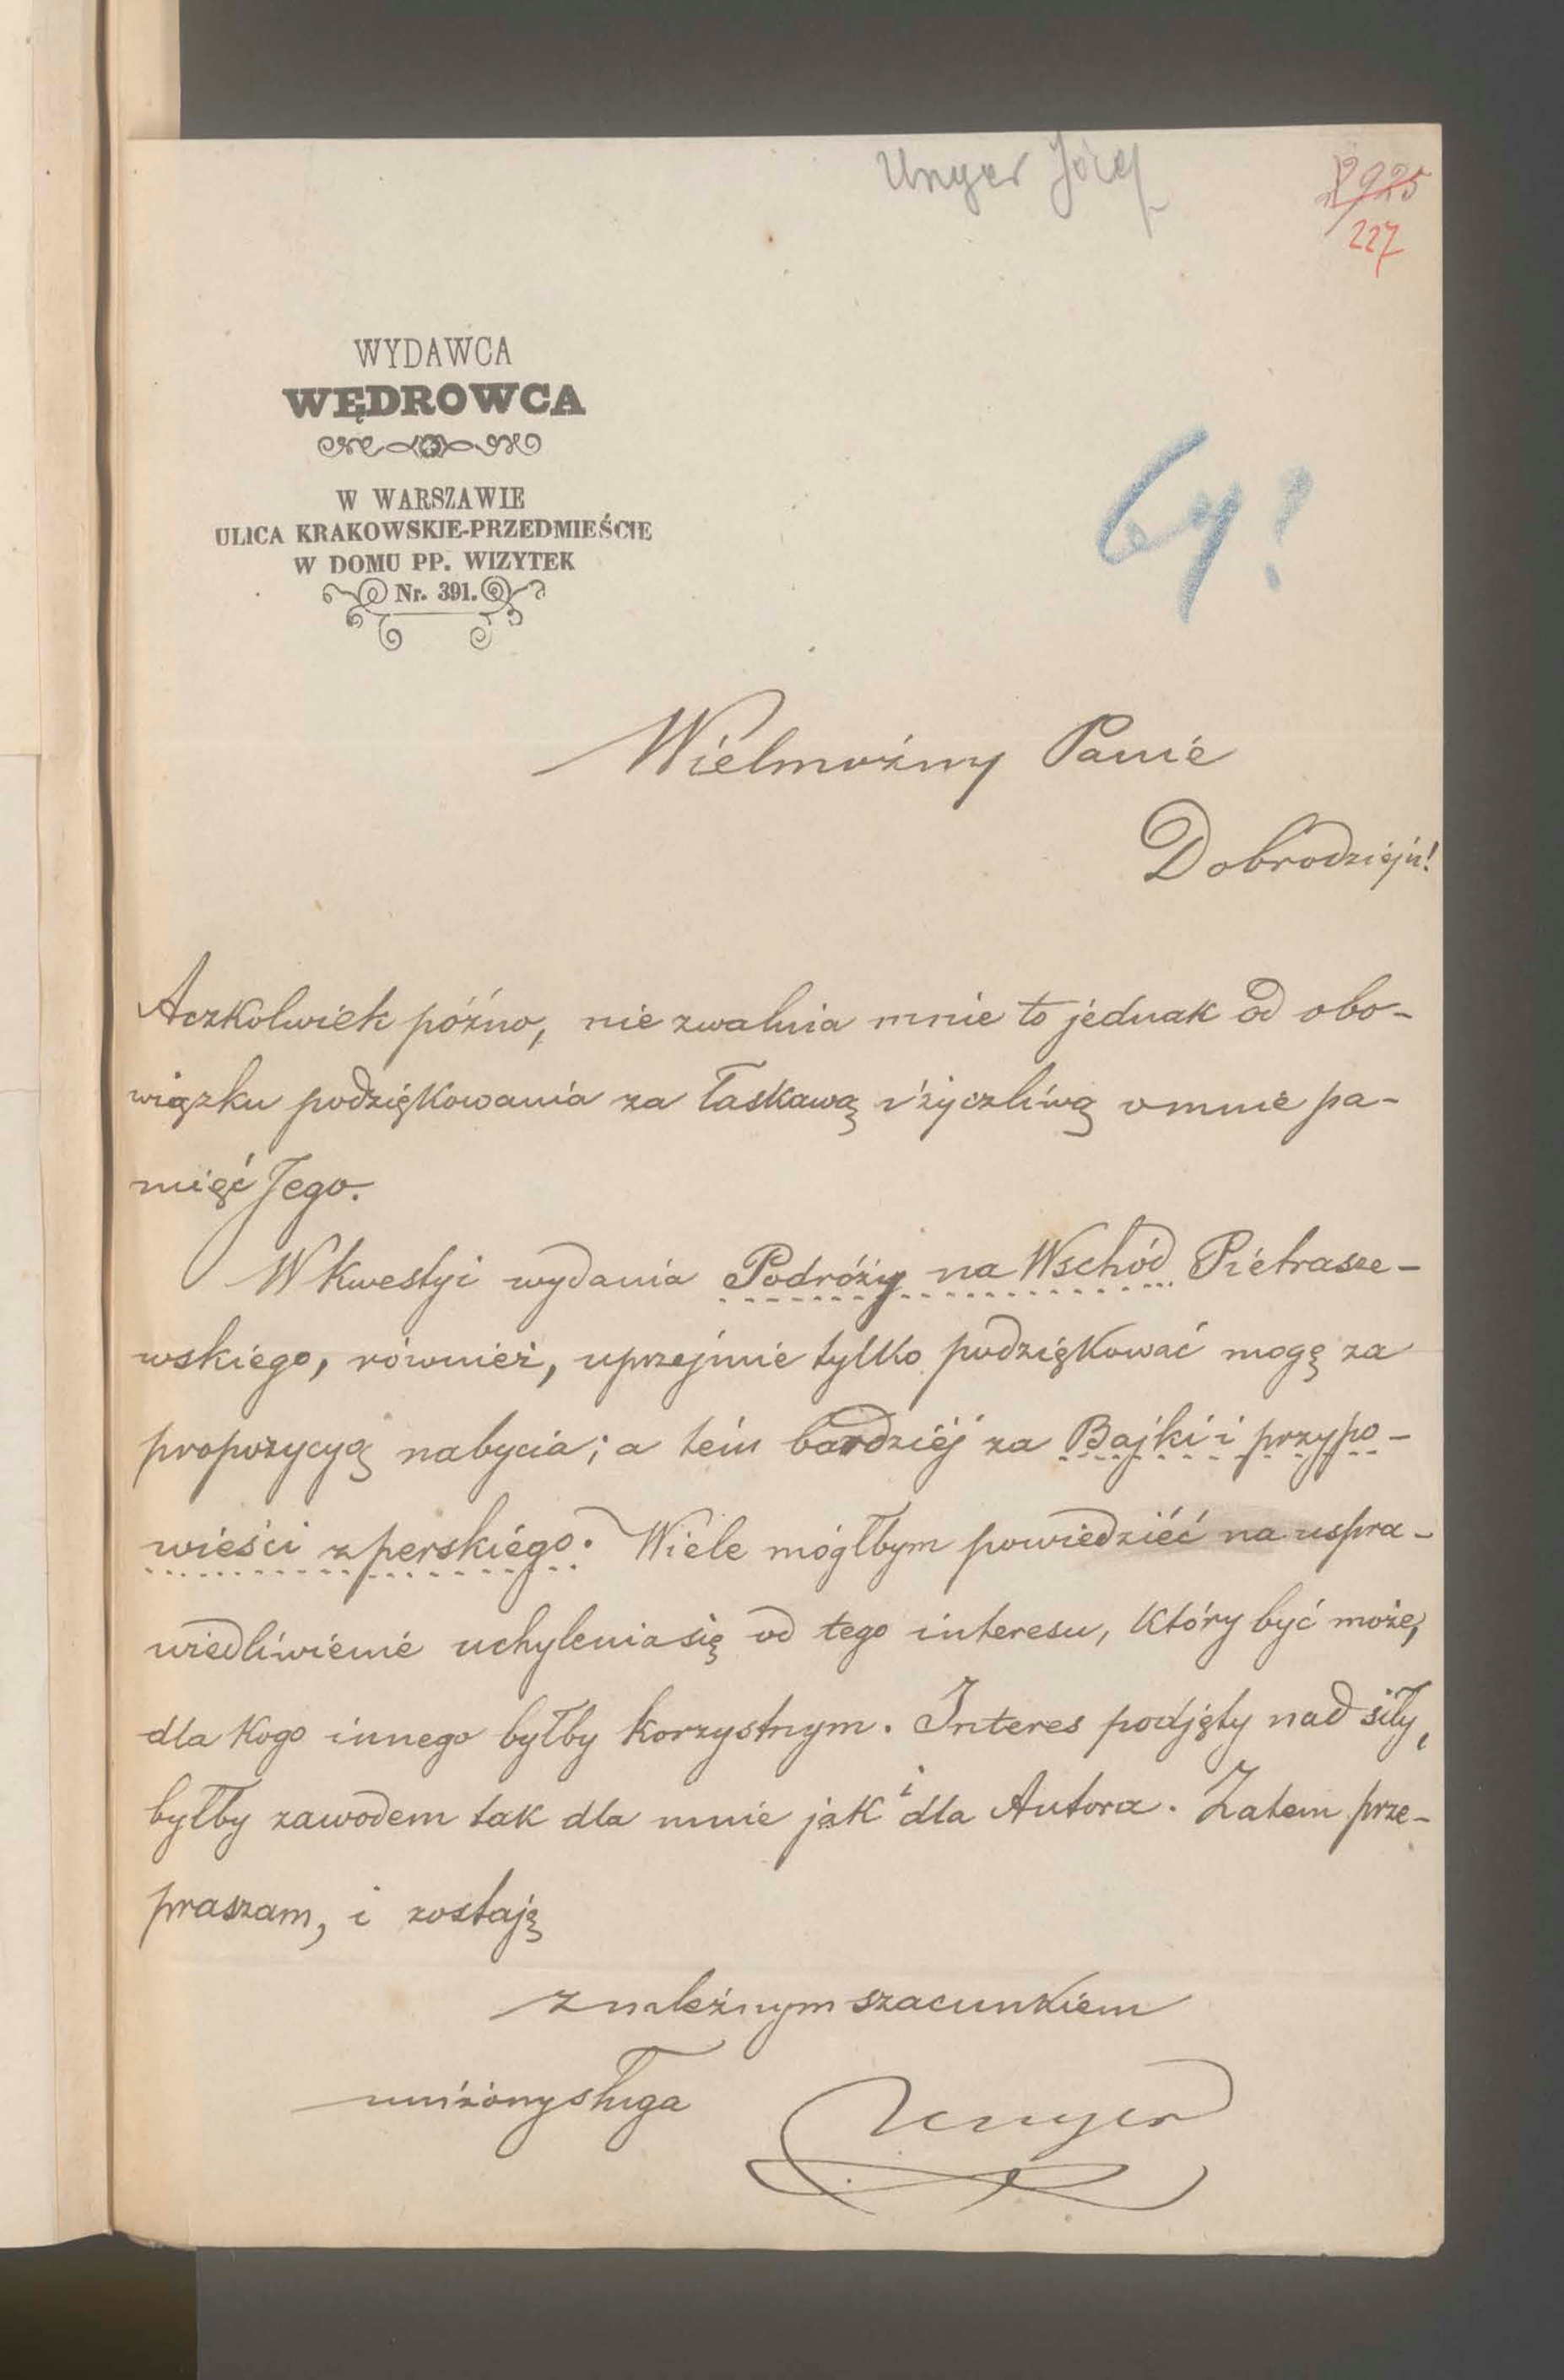 Unger Józef
2925
227
WYDAWCA
WĘDROWCA
W WARSZAWIE
ULICA KRAKOWSKIE-PRZEDMIEŚCIE
W DOMU PP. WIZYTEK
Nr. 391.
Wielmożny Panie
Dobrodzieju!
Aczkolwiek późno, nie zwalnia mnie to jednak od obo-
wiązku podziękowania za łaskawą i życzliwą o mnie pa-
mięć Jego.
W kwestyi wydania Podróży na Wschód Piétrasze-
wskiego, również, uprzejmie tylko podziękować mogę za
propozycyą nabycia; a tém bardziéj za Bajki i przypo-
wieści z perskiégo. Wiele mógłbym powiedziéć na uspra-
wiedliwiénié uchylenia się od tego interesu, który być może,
dla kogo innego byłby korzystnym. Interes podjęty nad siły,
byłby zawodem tak dla mnie jak i dla Autora. Zatem prze-
praszam, i zostaję
z należnym szacunkiem
uniżony sługa
Unger